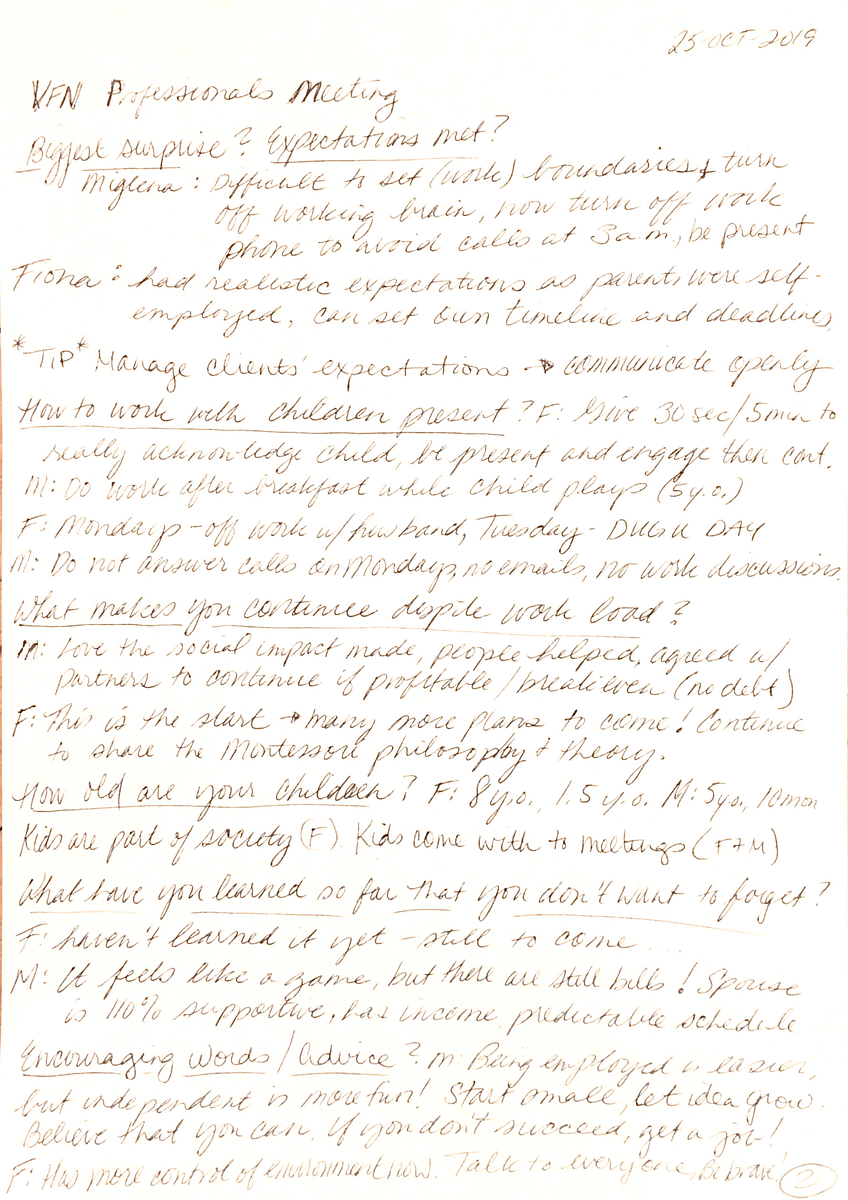 25-OCT-2019
VFN Professionals Meeting
Biggest surprise? Expectations met?
Miglena: Difficult to set (work) boundaries & turn
off working brain, now turn off work
phone to avoid calls at 3 a.m., be present
Fiona: had realistic expectations as parents were self-
employed, can set own timeline and deadlines.
*TIP* Manage clients' expectations → communicate openly
How to work with children present? F: Give 30 sec/5min to
really acknowledge child, be present and engage then cont.
M: Do work after breakfast while child plays (5 y.o.)
F: Mondays - off work w/ husband, Tuesday - DAY
M: Do not answer calls on Mondays, no emails, no work discussions.
What makes you continue dispite work load?
M: Love the social impact made, people helped, agreed w/
partners to continue if profitable/breakeven (no debt)
F: This is the start → many more plans to come! Continue
to share the Montessori philosophy & theory.
How old are your children? F: 8 y.o., 1.5 y.o. M: 5 y.o., 10 mon
Kids are part of society (F). Kids come with to meetings (F+M)
What have you learned so far that you don't want to forget?
F: haven't learned it yet - still to come ...
M: It feels like a game, but there are still bills! Spouse
is 110% supportive, has income, predictable schedule
Encouraging words/Advice? M: Being employed is easier,
but independent is more fun! Start small, let idea grow.
Believe that you can. If you don't succeed, get a job!
F: Has more control of environment now. Talk to everyone, Be brave!
2